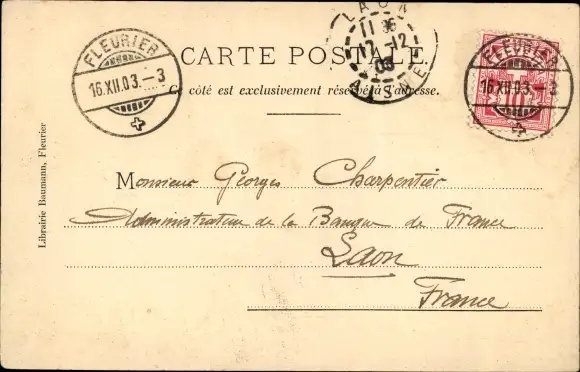 FLEURIER
16.XII.03.–3
LAON
AISNE
CARTE POSTALE.
Ce côté est exclusivement réservé à l'adresse.
FLEURIER
16.XII.03.–3
10
Librairie Baumann, Fleurier
Monsieur Georges Charpentier
Administrateur de la Banque de France
Laon
France